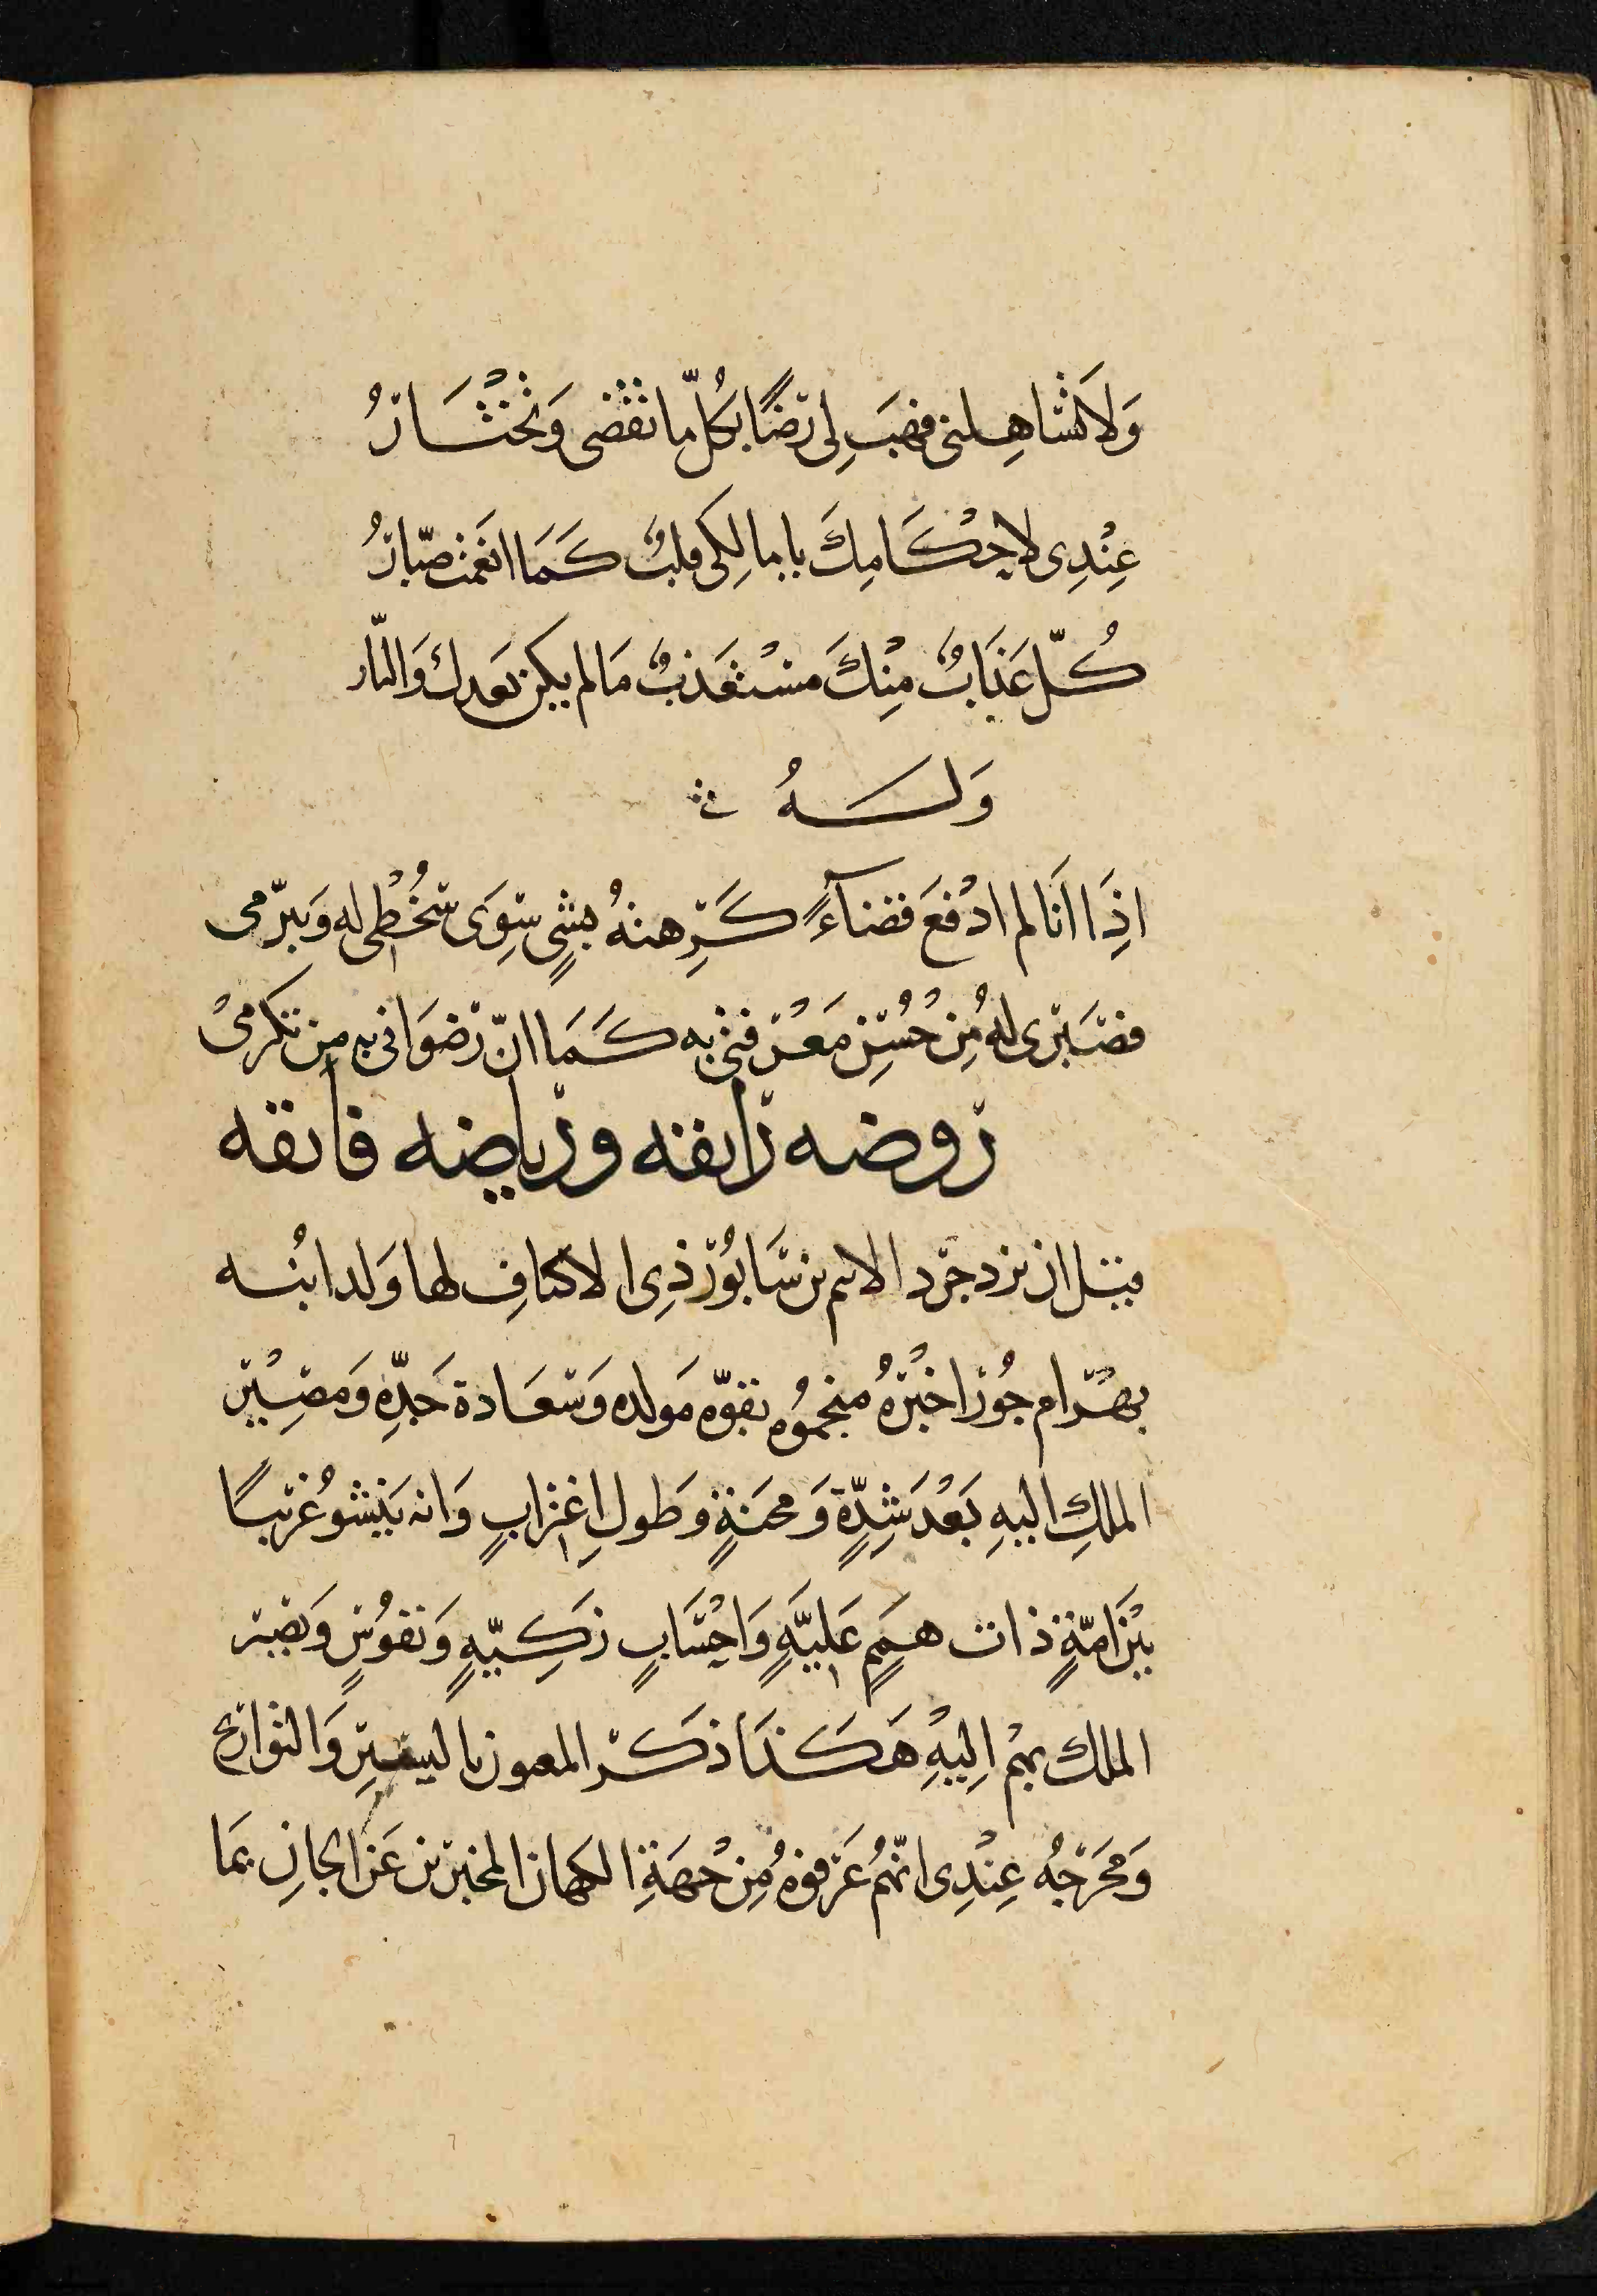 وَلَا كَشَاهِلني فهَبَ لِى رِضًا بكُلّ ما تقْضى وَتخْتَارُ
عِنْدِى لاحِكَامِكَ يا مالِكى قلبٌ كَمَا انعَمْت صبّارُ
كُلّ عَذَابٌ مِنْكَ مسْتعذبٌ مَالم يكن بَعدك وَالنّار
وَلَهُ
اذِا اَنا لم ادْفعَ قضآءً كَرِهتهُ بشىٍ سِوَى سُخْطى له وَتبرّمى
فصَبْرى لهُ مِن حُسْنِ مَعْرفتى به كَمَا انّ رضوَانى به من تكرمىْ
روضه رايقه ورياضه فايقه
قيل ان يزدجرد الاثيم بن سَابُور ذِى الاكتافِ لما وَلد ابنُه
بهرام جُور اخبرَهُ منجمُوه بقوّه مَولده وَسعَادة جَدّهِ وَمصِيْر
الملكِ اليهِ بَعْدَ شِدّةٍ وَمحَنةٍ وَطولِ اِغترابٍ وَانه يَنشوُ غريبًا
بيْنَ امّةٍ ذات همَمٍ عَليَّةٍ وَاحْسَابٍ زكِيّهٍ وَنفوُسٍ وَيصير
الملك بهْم اِليْهِ هَكَذا ذكَر المعنون بالسِيَرِ وَالتوَاريخ
وَمخرَجُه عِنْدِى انّهُم عَرفوُهُ مِن جْهَةِ الكهان المخبرين عَن الجانِ بمَا